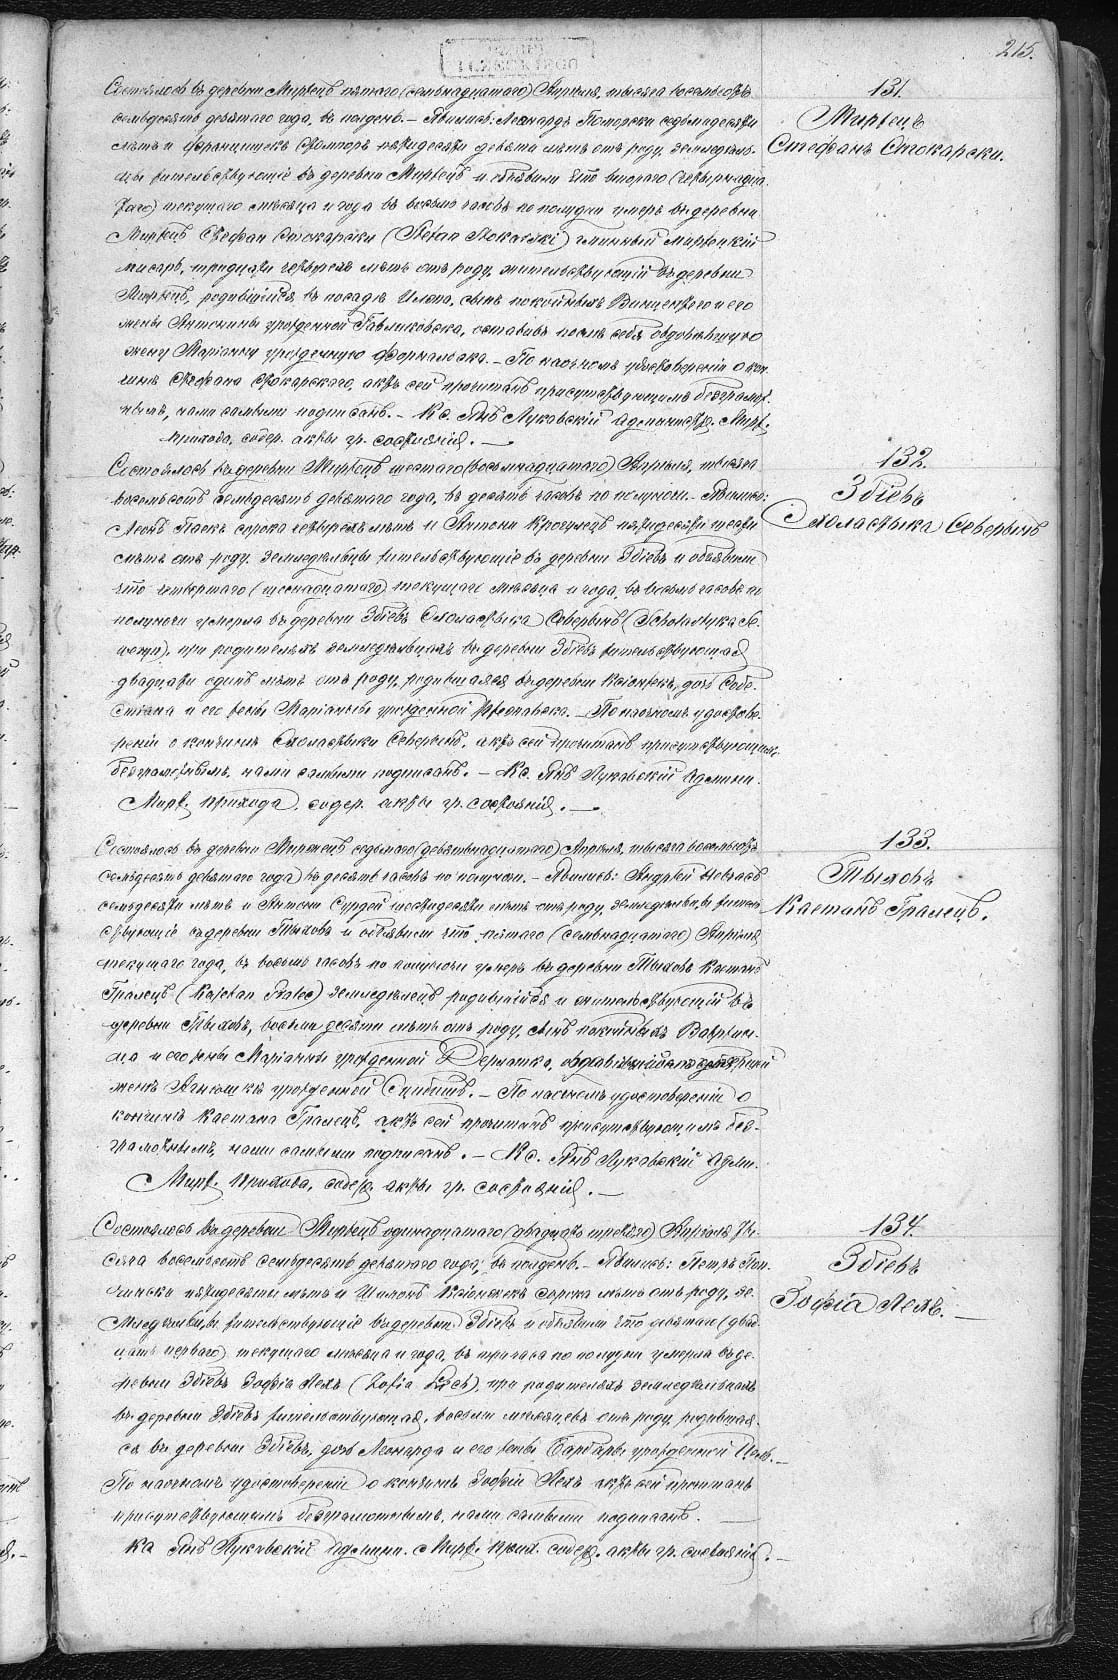 215.
131.
Миржецъ
Стефанъ Стокарски.
Состоялось въ деревни Миржецъ пятаго (семьнадцатаго) Апрѣля, тысяча восемьсотъ
семьдесятъ девятаго года, въ полдень. — Явились: Леонардъ Поморски седьмидесяти
лѣтъ и Францишекъ пятидесяти девяти лѣтъ отъ роду, земледѣль-
цы жительствующіе въ деревни Миржецъ и объявили что втораго (четырнадца-
таго) текущаго мѣсяца и года въ восемь часовъ по полудни умеръ въ деревни
Миржецъ Стефан Стокарски (Stefan Stokarski) гминный миржецкій
писарь, тридцати четырехъ лѣтъ отъ роду, жительствующій въ деревни
Миржецъ, родившійся въ посадѣ Илжа, сынъ покойныхъ Винцентего и его
жены Антонины урожденной Гавликовска, оставивъ послѣ себя овдовѣвшую
жену Маріанну урожденную Форнальска. — По наочномъ удостовереніи о кон-
чинѣ Стефана Стокарскаго, актъ сей прочитанъ присутствующимъ безграмот-
нымъ, нами самыми подписанъ. — Кс. Янъ Луковскій Администр. Мирж.
прихода, содер. акты гр. состоянія. —
132.
Збіевъ
Схоластыка Северынъ
Состоялось въ деревни Миржецъ шестаго (восьмнадцатаго) Апрѣля, тысяча
восемьсотъ семьдесятъ девятаго года, въ десять часовъ по полуночи. — Явились:
Леонъ Пасекъ сорока четырехъ лѣтъ и Антони Крогулецъ пятидесяти шести
лѣтъ отъ роду, земледѣльцы жительствующіе въ деревни Збіевъ и объявили
что четвертаго (шестнадцатаго) текущаго мѣсяца и года, въ восемь часовъ по
полуночи умерла въ деревни Збіевъ Схоластыка Северынъ (Scholastyka Se-
weryn), при родителяхъ земледѣльцахъ въ деревни Збіевъ жительствующая
двадцати одинъ лѣтъ отъ роду, родившаяся въ деревни Ксіонжекъ, дочь Себе-
стіяна и его жены Маріанны урожденной. — По наочномъ удостове-
реніи о кончинѣ Схоластыки Северынъ, актъ сей прочитанъ присутствующимъ
безграмотнымъ, нами самыми подписанъ. — Кс. Янъ Луковскій Админи.
Мирж. прихода, содер. акты гр. состоянія. —
133.
Тыховъ
Каетанъ Гралецъ.
Состоялось въ деревни Миржецъ седьмаго (девятьнадцатаго) Апрѣля, тысяча восемьсотъ
семьдесятъ девятаго года въ десять часовъ по полуночи. — Явились: Андржей
семьдесяти лѣтъ и Антони шестидесяти лѣтъ отъ роду, земледѣльцы, житель-
ствующіе въ деревни Тыховъ и объявили что пятаго (семьнадцатаго) Апрѣля
текущаго года, въ восемь часовъ по полуночи умеръ въ деревни Тыховъ Каетанъ
Гралецъ (Kajetan Gralec) земледѣлецъ родившійся и жительствующій въ
деревни Тыховъ, восьми десяти лѣтъ отъ роду, сынъ покойныхъ Вавржин-
ца и его жены Маріанны урожденной
женѣ Агнешкѣ урожденной. — По наочномъ удостовереніи о
кончинѣ Каетана Гралецъ, актъ сей прочитанъ присутствующимъ без-
грамотнымъ, нами самыми подписанъ. — Кс. Янъ Луковскій Адми.
Мирж. прихода, содер. акты гр. состоянія. —
134.
Збіевъ
Зофіа Лехъ. —
Состоялось въ деревни Миржецъ одинадцатаго (двадцать третяго) Апрѣля ты-
сяча восемьсотъ семьдесятъ девятаго года, въ полдень. — Явились: Петръ Поп-
чински пятидесяти лѣтъ и Шимонъ Ксіонжекъ сорока лѣтъ отъ роду, зе-
мледѣльцы жительствующіе въ деревни Збіевъ и объявили что девятаго (двад-
цать перваго) текущаго мѣсяца и года, въ три часа по полудни умерла въ де-
ревни Збіевъ Зофіа Лехъ (Zofia Lech), при родителяхъ земледѣльцахъ
въ деревни Збіевъ жительствующая, восьми мѣсяцевъ отъ роду, родившая-
ся въ деревни Збіевъ, дочь Леонарда и его жены Барбары урожденной —
По наочномъ удостовереніи о кончинѣ Зофіи Лехъ актъ сей прочитанъ
присутствующимъ безграмотнымъ, нами самыми подписанъ. —
Кс Янъ Луковскій Админи. Мирж. прих. содер. акты гр. состоянія. —